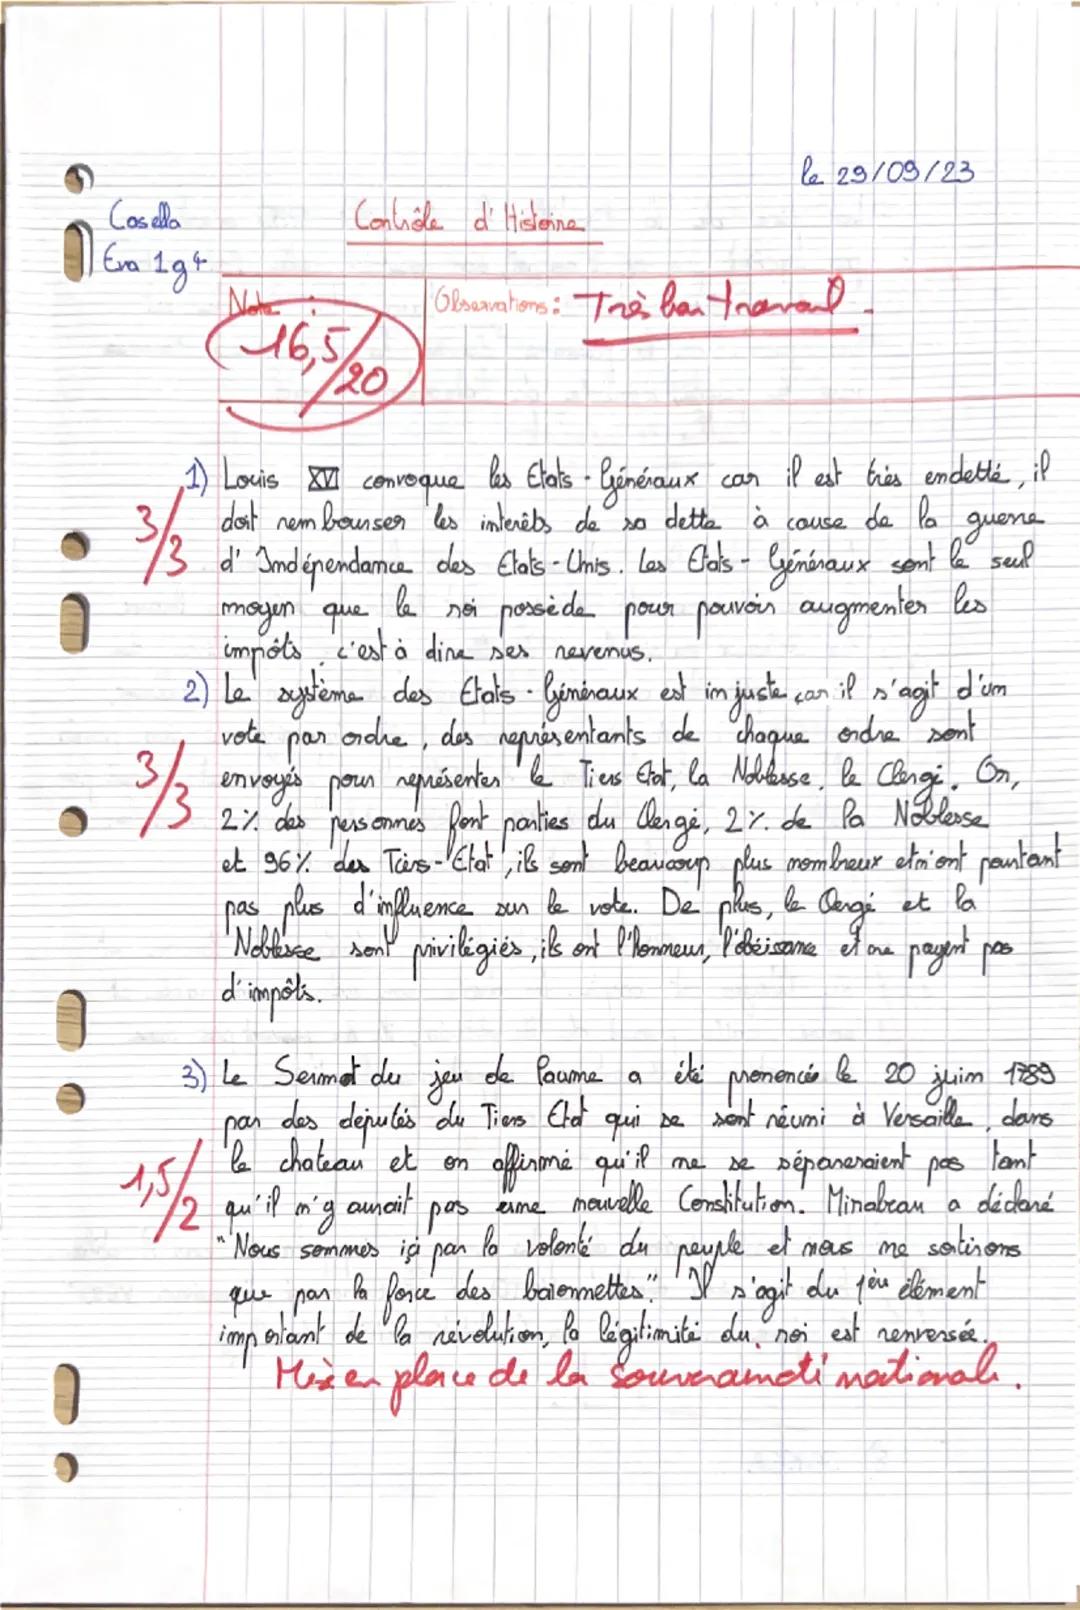 le 29/09/23
Casella
Contrôle d'Histoire
Eva 1g4
Note :
Observations : Très bon travail.
16,5/20
1) Louis XVI convoque les Etats-Généraux car il est très endetté, il
3/3
doit rembourser les interêts de sa dette à cause de la guerre
d'Indépendance des Etats-Unis. Les Etats-Généraux sont le seul
moyen que le roi possède pour pouvoir augmenter les
impôts, c'est à dire ses revenus.
2) Le système des Etats-Généraux est injuste car il s'agit d'un
vote par ordre, des représentants de chaque ordre sont
3/3
envoyés pour représenter le Tiers Etat, la Noblesse, le Clergé. Or,
2% des personnes font parties du Clergé, 2% de la Noblesse
et 96% des Tiers-Etat, ils sont beaucoup plus nombreux et n'ont pourtant
pas plus d'influence sur le vote. De plus, le Clergé et la
Noblesse sont privilégiés, ils ont l'honneur, l'obéissance et ne payent pas
d'impôts.
3) Le Serment du jeu de Paume a été prononcés le 20 juin 1789
par des députés du Tiers Etat qui se sont réuni à Versaille, dans
1,5/2
le chateau et on affirmé qu'il ne se sépareraient pas tant
qu'il n'y aurait pas une nouvelle Constitution. Mirabeau a déclaré
"Nous sommes içi par la volonté du peuple et nous ne sortirons
que par la force des baïonnettes". Il s'agit du 1er élément
important de la révolution, la légitimité du roi est renversée.
Mise en place de la souveraineté nationale.